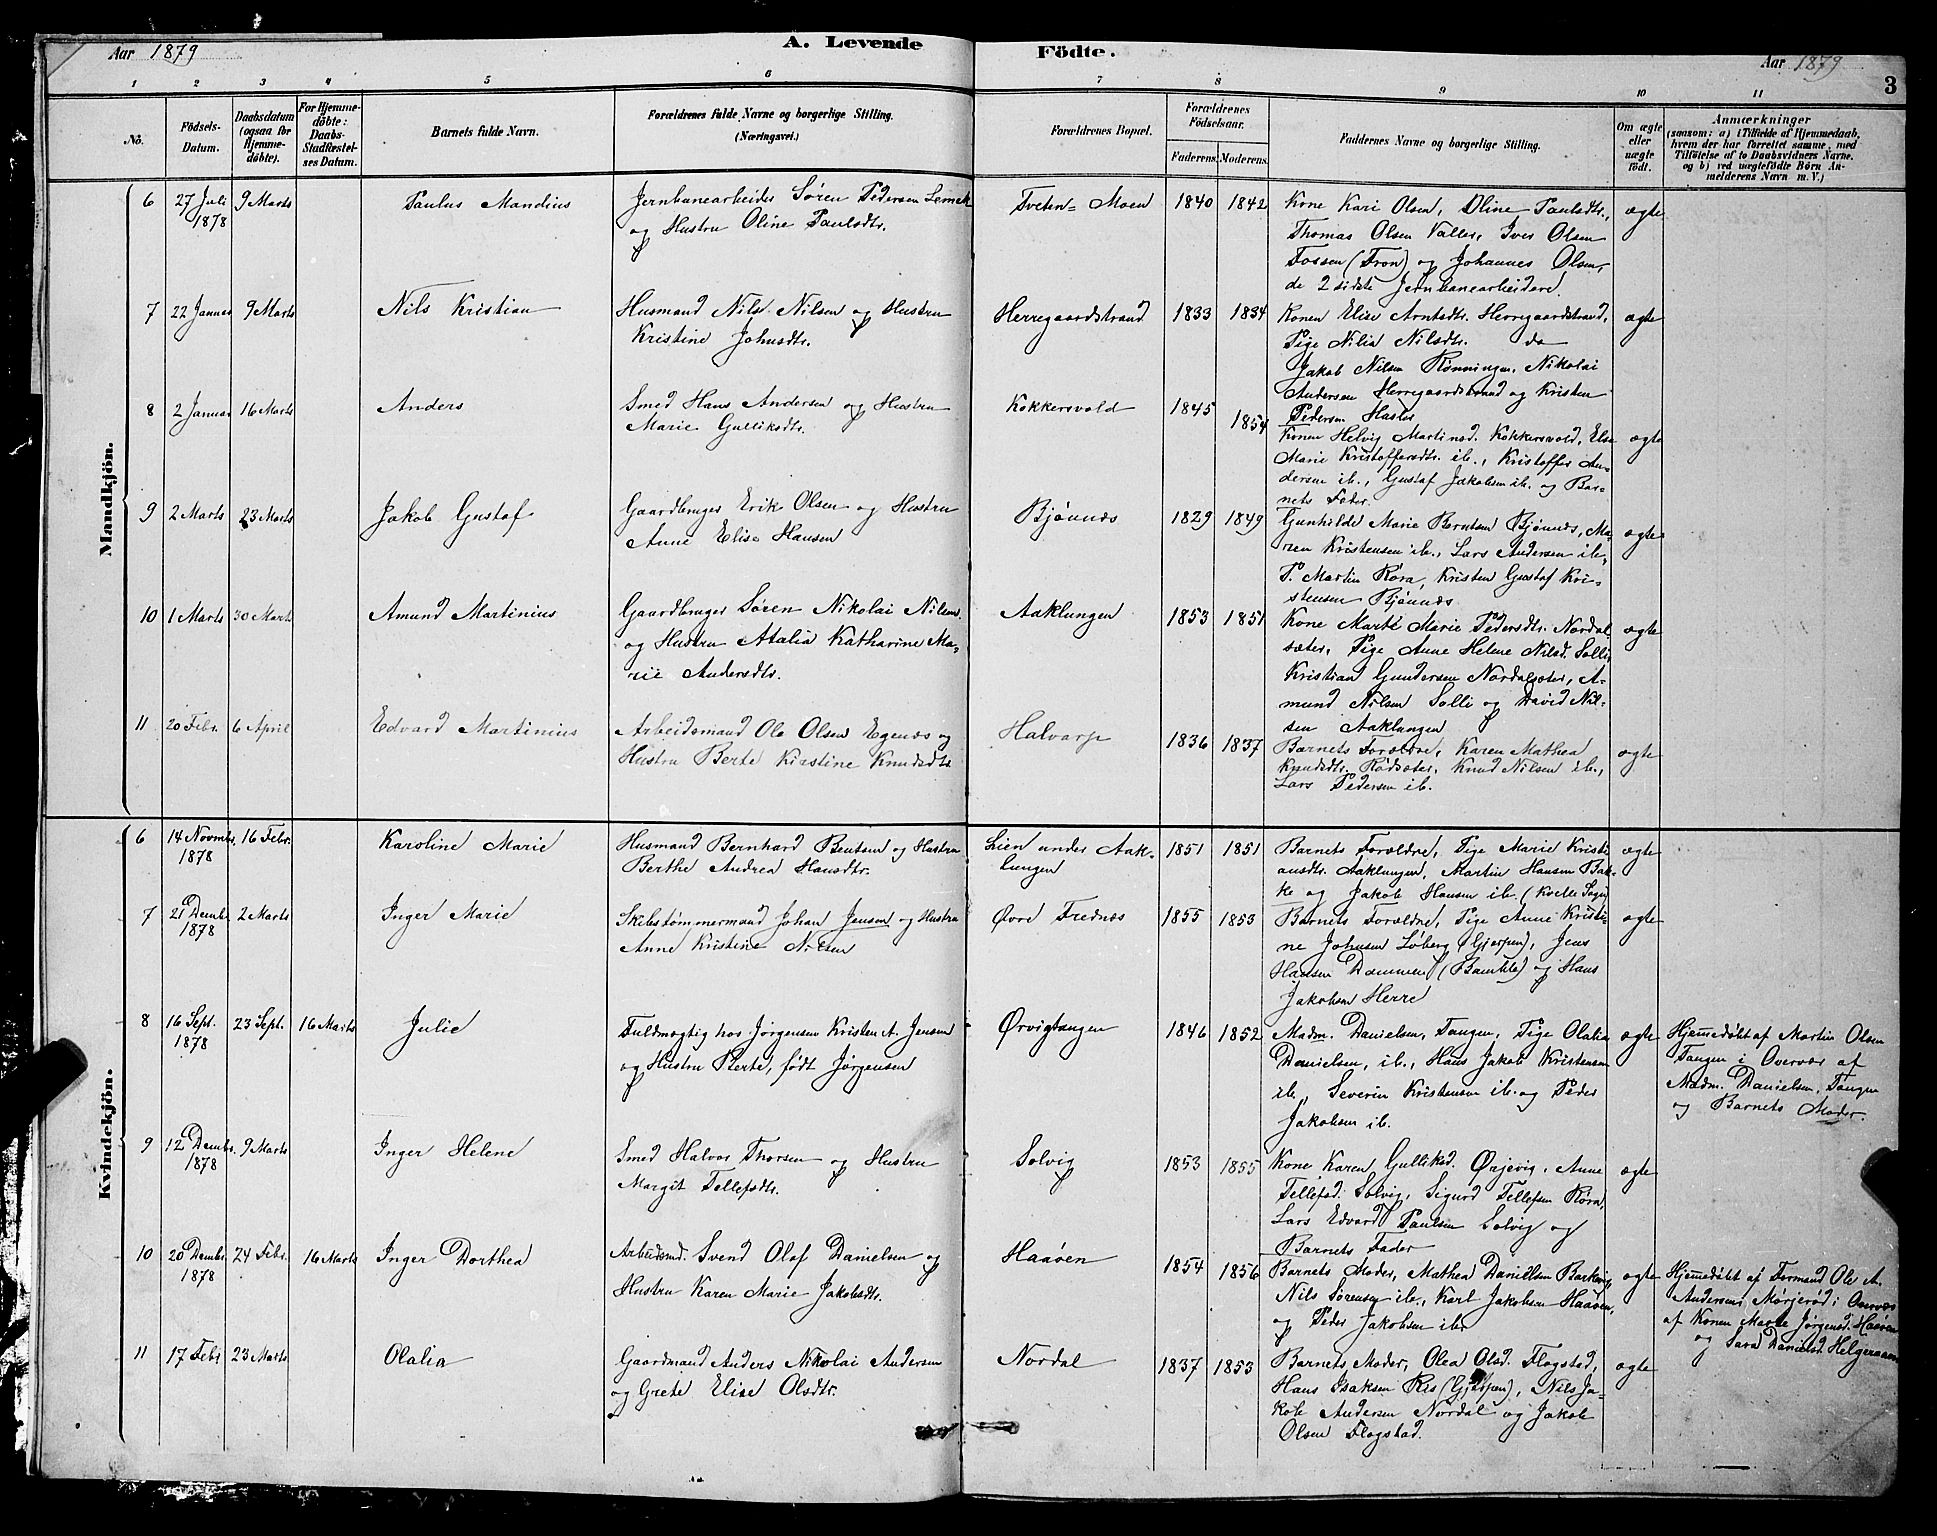 Aar 1879
A. Levende
Födte.
Aar 1879
3
1 2 3 4 5 6 7 8 9 10 11
No.
Födsels-
Datum.
Daabsdatum
(ogsaa for
Hjemme-
döbte).
For Hjemme-
döbte:
Daabs-
Stadfæstel-
ses Datum.
Barnets fulde Navn.
Forældrenes fulde Navne og borgerlige Stilling.
(Næringsvei.)
Forældrenes Bopæl.
Forældrenes
Födselsaar.
Faderens. Moderens.
Faddernes Navne og borgerlige Stilling.
Om ægte
eller
uægte
födt.
Anmærkninger
(saasom: a) i Tilfælde af Hjemmedaab,
hvem der har forrettet samme, med
Tilföielse af to Daabsvidners Navne,
og b) ved uægtefödte Börn An-
melderens Navn m. V.)
Mandkjön.
6 27 Juli 9 Marts Paulus Mandius Jernbanearbeider Søren Pedersen
1878 og Hustru Oline Paulsdtr.
Tveten-Moen 1840 1842 Kone Kari Olsen, Oline Paulsdtr., ægte
Thomas Olsen Valler, Iver Olsen
Fossen (Fron) og Johannes Olsen,
de 2 sidste Jernbanearbeidere.
7 22 Januar 9 Marts Nils Kristian Husmand Nils Nilsen og Hustru
Kristine Johnsdtr.
Herregaardstrand 1833 1834 Konen Elise Arntsdtr. Herregaardstrand, ægte
Pige Nilia Nilsdtr. do
Jakob Nilsen Rønningen, Nikolai
Andersen Herregaardstrand og Kristen
Pedersen Hasler
8 2 Januar 16 Marts Anders Smed Hans Andersen og Hustru
Marie Gulliksdtr.
Kokkersvold 1845 1854 Konen Helvig Martinsd. Kokkersvold, Else ægte
Marie Kristoffersdtr. ib., Kristoffer An-
dersen ib., Gustaf Jakobsen ib. og Bar-
nets Fader.
9 2 Marts 23 Marts Jakob Gustaf Gaardbruger Erik Olsen og Hustru
Anne Elise Hansen
Bjønnes 1829 1849 Gunhilde Marie Berntsen Bjønnes, Ma- ægte
ren Kristensen ib., Lars Andersen ib.,
P. Martin Røra, Kristen Gustaf Kri-
stensen Bjønnes
10 1 Marts 30 Marts Amund Martinius Gaardbruger Søren Nikolai Nilsen
og Hustru Atalia Katharine Ma-
rie Andersdtr.
Aaklungen 1853 1851 Kone Marte Marie Pedersdtr. Nordal- ægte
sæter, Pige Anne Helene Nilsd. Solli
Kristian Gundersen Nordalsæter, A-
mund Nilsen Solli og David Nil-
sen Aaklungen
11 20 Febr. 6 April Edvard Martinius Arbeidsmand Ole Olsen Egenæs og
Hustru Berte Kirstine Knudsdtr.
Halvarp 1836 1837 Barnets Forældre, Karen Mathea ægte
Knudsdtr. Rødsæter, Knud Nilsen ib.,
Lars Pedersen ib.
Kvindekjön.
6 14 Novmbr. 16 Febr. Karoline Marie Husmand Bernhard Bentsen og Hustru
1878 Berthe Andrea Hansdtr.
Lien under Aak-
lungen
1851 1851 Barnets Forældre, Pige Marie Kristi- ægte
ansdtr. Aaklungen, Martin Hansen Bak-
ke og Jakob Hansen ib. (Kvelle Sogn)
7 21 Dembr. 2 Marts Inger Marie Skibstømmermand Johan Jensen og Hustru
1878 Anne Kristine Nilsen
Øvre Frednæs 1855 1853 Barnets Forældre, Pige Anne Kristi- ægte
ne Johnsen Løberg (Gjerpen), Jens
Hansen Dammen (Bamble) og Hans
Jakobsen Herre
8 16 Sept. 23 Sept. 16 Marts Julie Fuldmægtig hos Jørgensen Kristen A. Jensen
1878 og Hustru Berte, født Jørgensen
Ørvigtangen 1846 1852 Madm. Danielsen, Tangen, Pige Olalia ægte
Danielsen, ib., Hans Jakob Kristensen
ib., Severin Kristensen ib. og Peder
Jakobsen ib.
Hjemmedøbt af Martin Olsen
Tangen i Overvær af
Madm. Danielsen, Tangen
og Barnets Moder.
9 12 Dembr. 9 Marts Inger Helene Smed Halvor Thorsen og Hustru
1878 Margit Tellefsdtr.
Solvig 1853 1855 Kone Karen Gulliksd. Ørjevig, Anne ægte
Tellefsd. Solvig, Sigurd Tellefsen Røra,
Lars Edvard Paulsen Solvig og
Barnets Fader
10 20 Dembr. 24 Febr. 16 Marts Inger Dorthea Arbeidsmd. Svend Olaf Danielsen og
1878 Hustru Karen Marie Jakobsdtr.
Haaøen 1854 1856 Barnets Moder, Mathea Danielsen Barkevig, ægte
Nils Sørensen ib., Karl Jakobsen Haaøen,
og Peder Jakobsen ibr
Hjemmedøbt af Formand Ole A.
Andersen, Mørjerød i Overvær
af Konen Marte Jørgensd. Haaøen
og Sara Danielsd. Helgeraaen
11 17 Febr 23 Marts Olalia Gaardmand Anders Nikolai Andersen
og Grete Elise Olsdtr.
Nordal 1837 1853 Barnets Moder, Olea Olsd. Flogstad, ægte
Hans Isaksen Ris (Gjerpen), Nils Ja-
kob Andersen Nordal og Jakob
Olsen Flogstad.